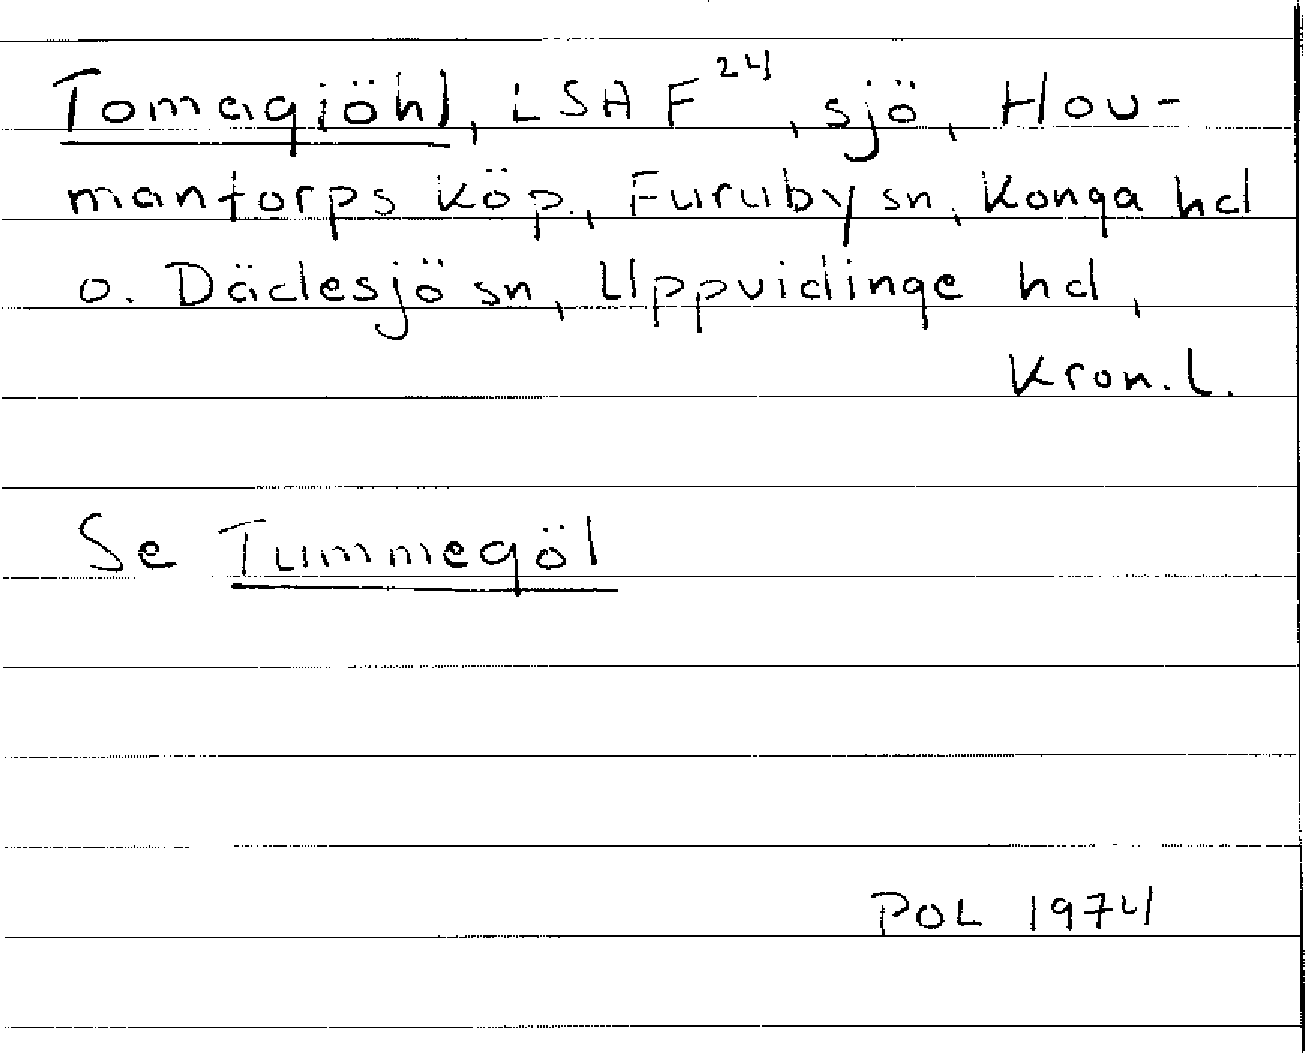 Tomagjöhl, LSA F²⁴, sjö, Hov-
mantorps köp., Furuby sn, Konga hd
o. Dädesjö sn, Uppvidinge hd,
Kron. l.
Se Tummegöl
POL 1974